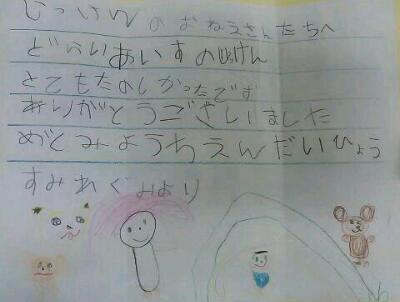 じっけんのおねえさんたちへ
どらいあいすのじっけん
とてもたのしかったです
ありがとうございました
めぐみようちえんだいひょう
すみれぐみより